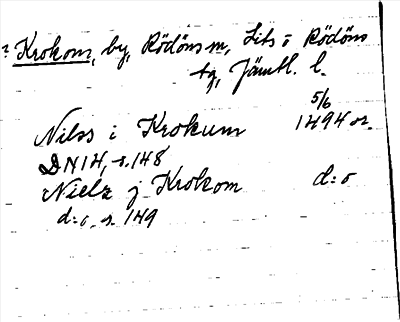 ? Krokom, by, Rödöns sn, Lits o Rödöns
tg, Jämtl. l.
5/6
Nilss i Krokum 1494 or.
DN 14, s. 148
Nielz j Krokom d:o
d:o, s. 149